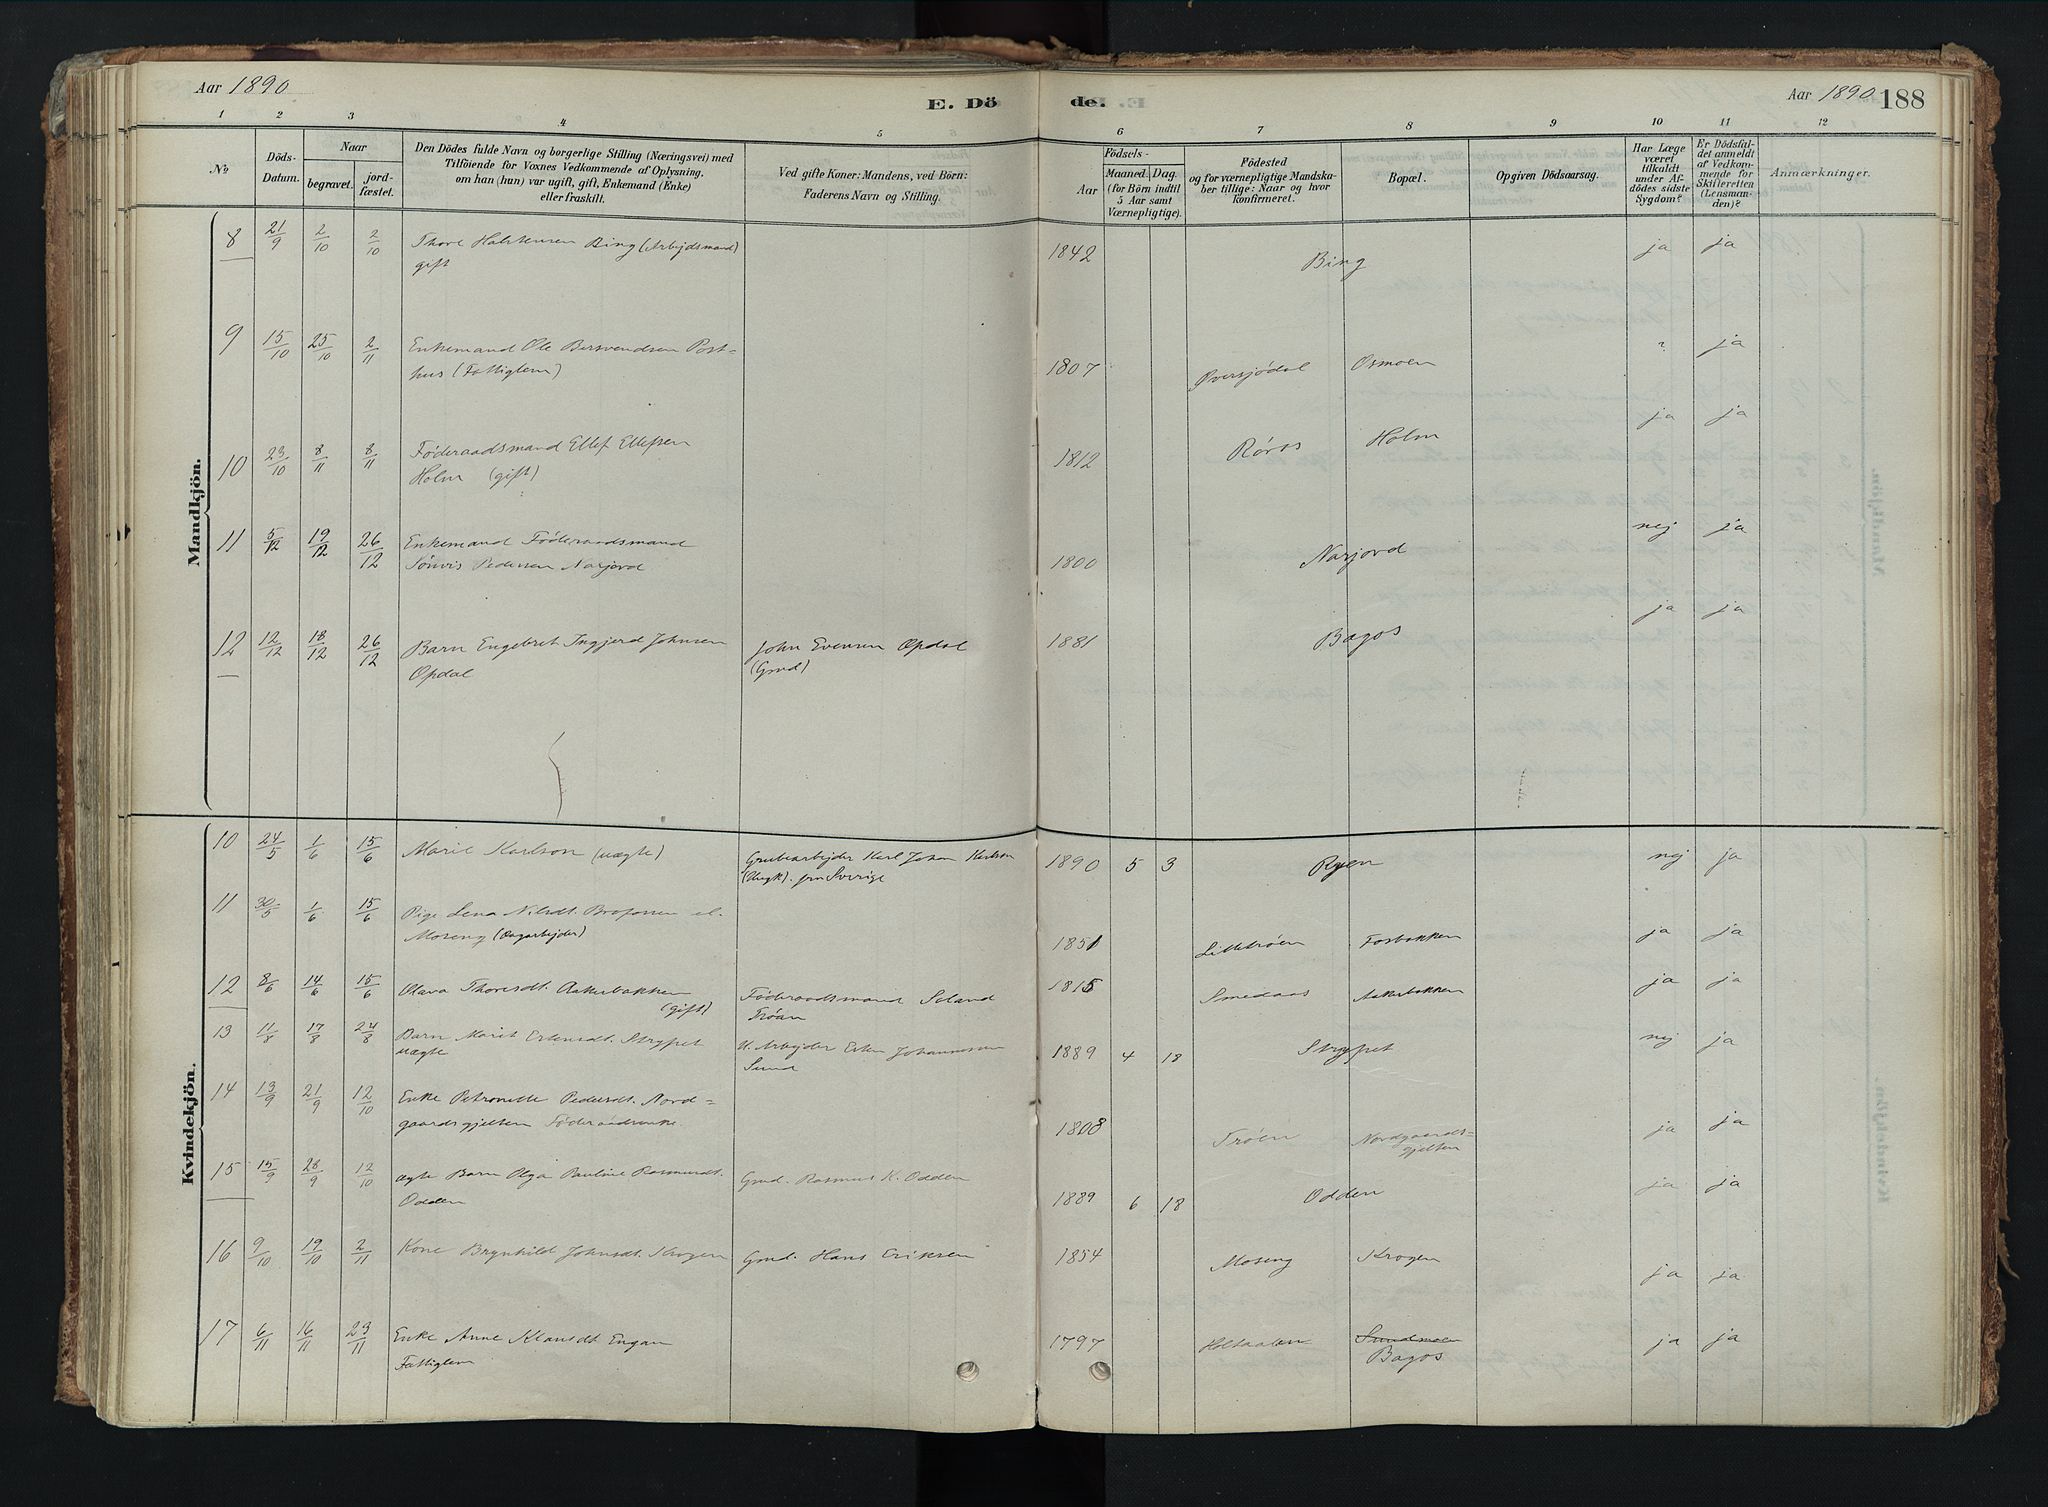 Aar 1890
E. Dö
de.
Aar 1890
188
1 2 3 4 5 6 7 8 9 10 11 12
No
Döds-
Datum.
Naar
begravet.
jord-
fæstet.
Den Dödes fulde Navn og borgerlige Stilling (Næringsvei) med
Tilföiende for Voxnes Vedkommende af Oplysning,
om han (hun) var ugift, gift, Enkemand (Enke)
eller fraskilt.
Ved gifte Koner: Mandens, ved Börn:
Faderens Navn og Stilling.
Födsels-
Aar
Maaned. Dag.
(for Börn indtil
5 Aar samt
Værnepligtige).
Födested
og for værnepligtige Mandska-
ber tillige: Naar og hvor
konfirmeret.
Bopæl.
Opgiven Dödsaarsag.
Har Læge
været
tilkaldt
under Af-
dödes sidste
Sygdom?
Er Dödsfal-
det anmeldt
af Vedkom-
mende for
Skifteretten
(Lensman-
den)?
Anmærkninger.
Mandkjön.
8 21/9 2/10 2/10 Thore Halstensen Bing (Arbejdsmand) 1842 Bing ja ja
gift
9 15/10 25/10 2/11 Enkemand Ole Bersvendsen Post= 1807 Øversjødal Osmoen ? ja
hus (Fattiglem)
10 23/10 8/11 8/11 Føderaadsmand Ellef Ellefsen 1812 Røros Holm ja ja
Holm (gift)
11 5/12 19/12 26/12 Enkemand Føderaadsmand 1800 Narjord nej ja
Sønvis Pedersen Narjord
12 12/12 18/12 26/12 Barn Engebret Ingjerd Johnsen John Evensen Opdal 1881 Bagos ja ja
Opdal (Gmd)
Kvindekjön.
10 24/5 1/6 15/6 Marie Karlson (uægte) Grubearbejder Karl Johan Karlson 1890 5 3 Ryen nej ja
(Ungk). fra Sverige
11 30/5 1/6 15/6 Pige Lena Nilsdt. el. 1851 Lilletrøen Fosbakken ja ja
Moseng (Dagarbejder)
12 8/6 14/6 15/6 Olava Thoresdt. Aakerbakken Føderaadsmand 1815 Smedaas Aakerbakken ja ja
(gift) Trøan
13 11/8 17/8 24/8 Barn Marit Estensdt. Strypet U. Arbejder Esten Johannessen 1889 4 18 Strypet nej ja
uægte Sund
14 13/9 21/9 12/10 Enke Petronelle Pedersdt. Nord= 1808 Trøen Nordgaards= ja ja
gaardsgjelten Føderaadsenke. gjelten
15 15/9 28/9 12/10 ægte Barn Olga Pauline Rasmusdt. Gmd. Rasmus K. Odden 1889 6 18 Odden ja ja
Odden
16 9/10 19/10 2/11 Kone Brynhild Johnsdt. Krogen Gmd. Hans Eriksen 1854 Moseng Krogen ja ja
17 6/11 16/11 23/11 Enke Anne Klausdt. Engan 1797 Holtaalen Sundmoen ja ja
Fattiglem Bagos